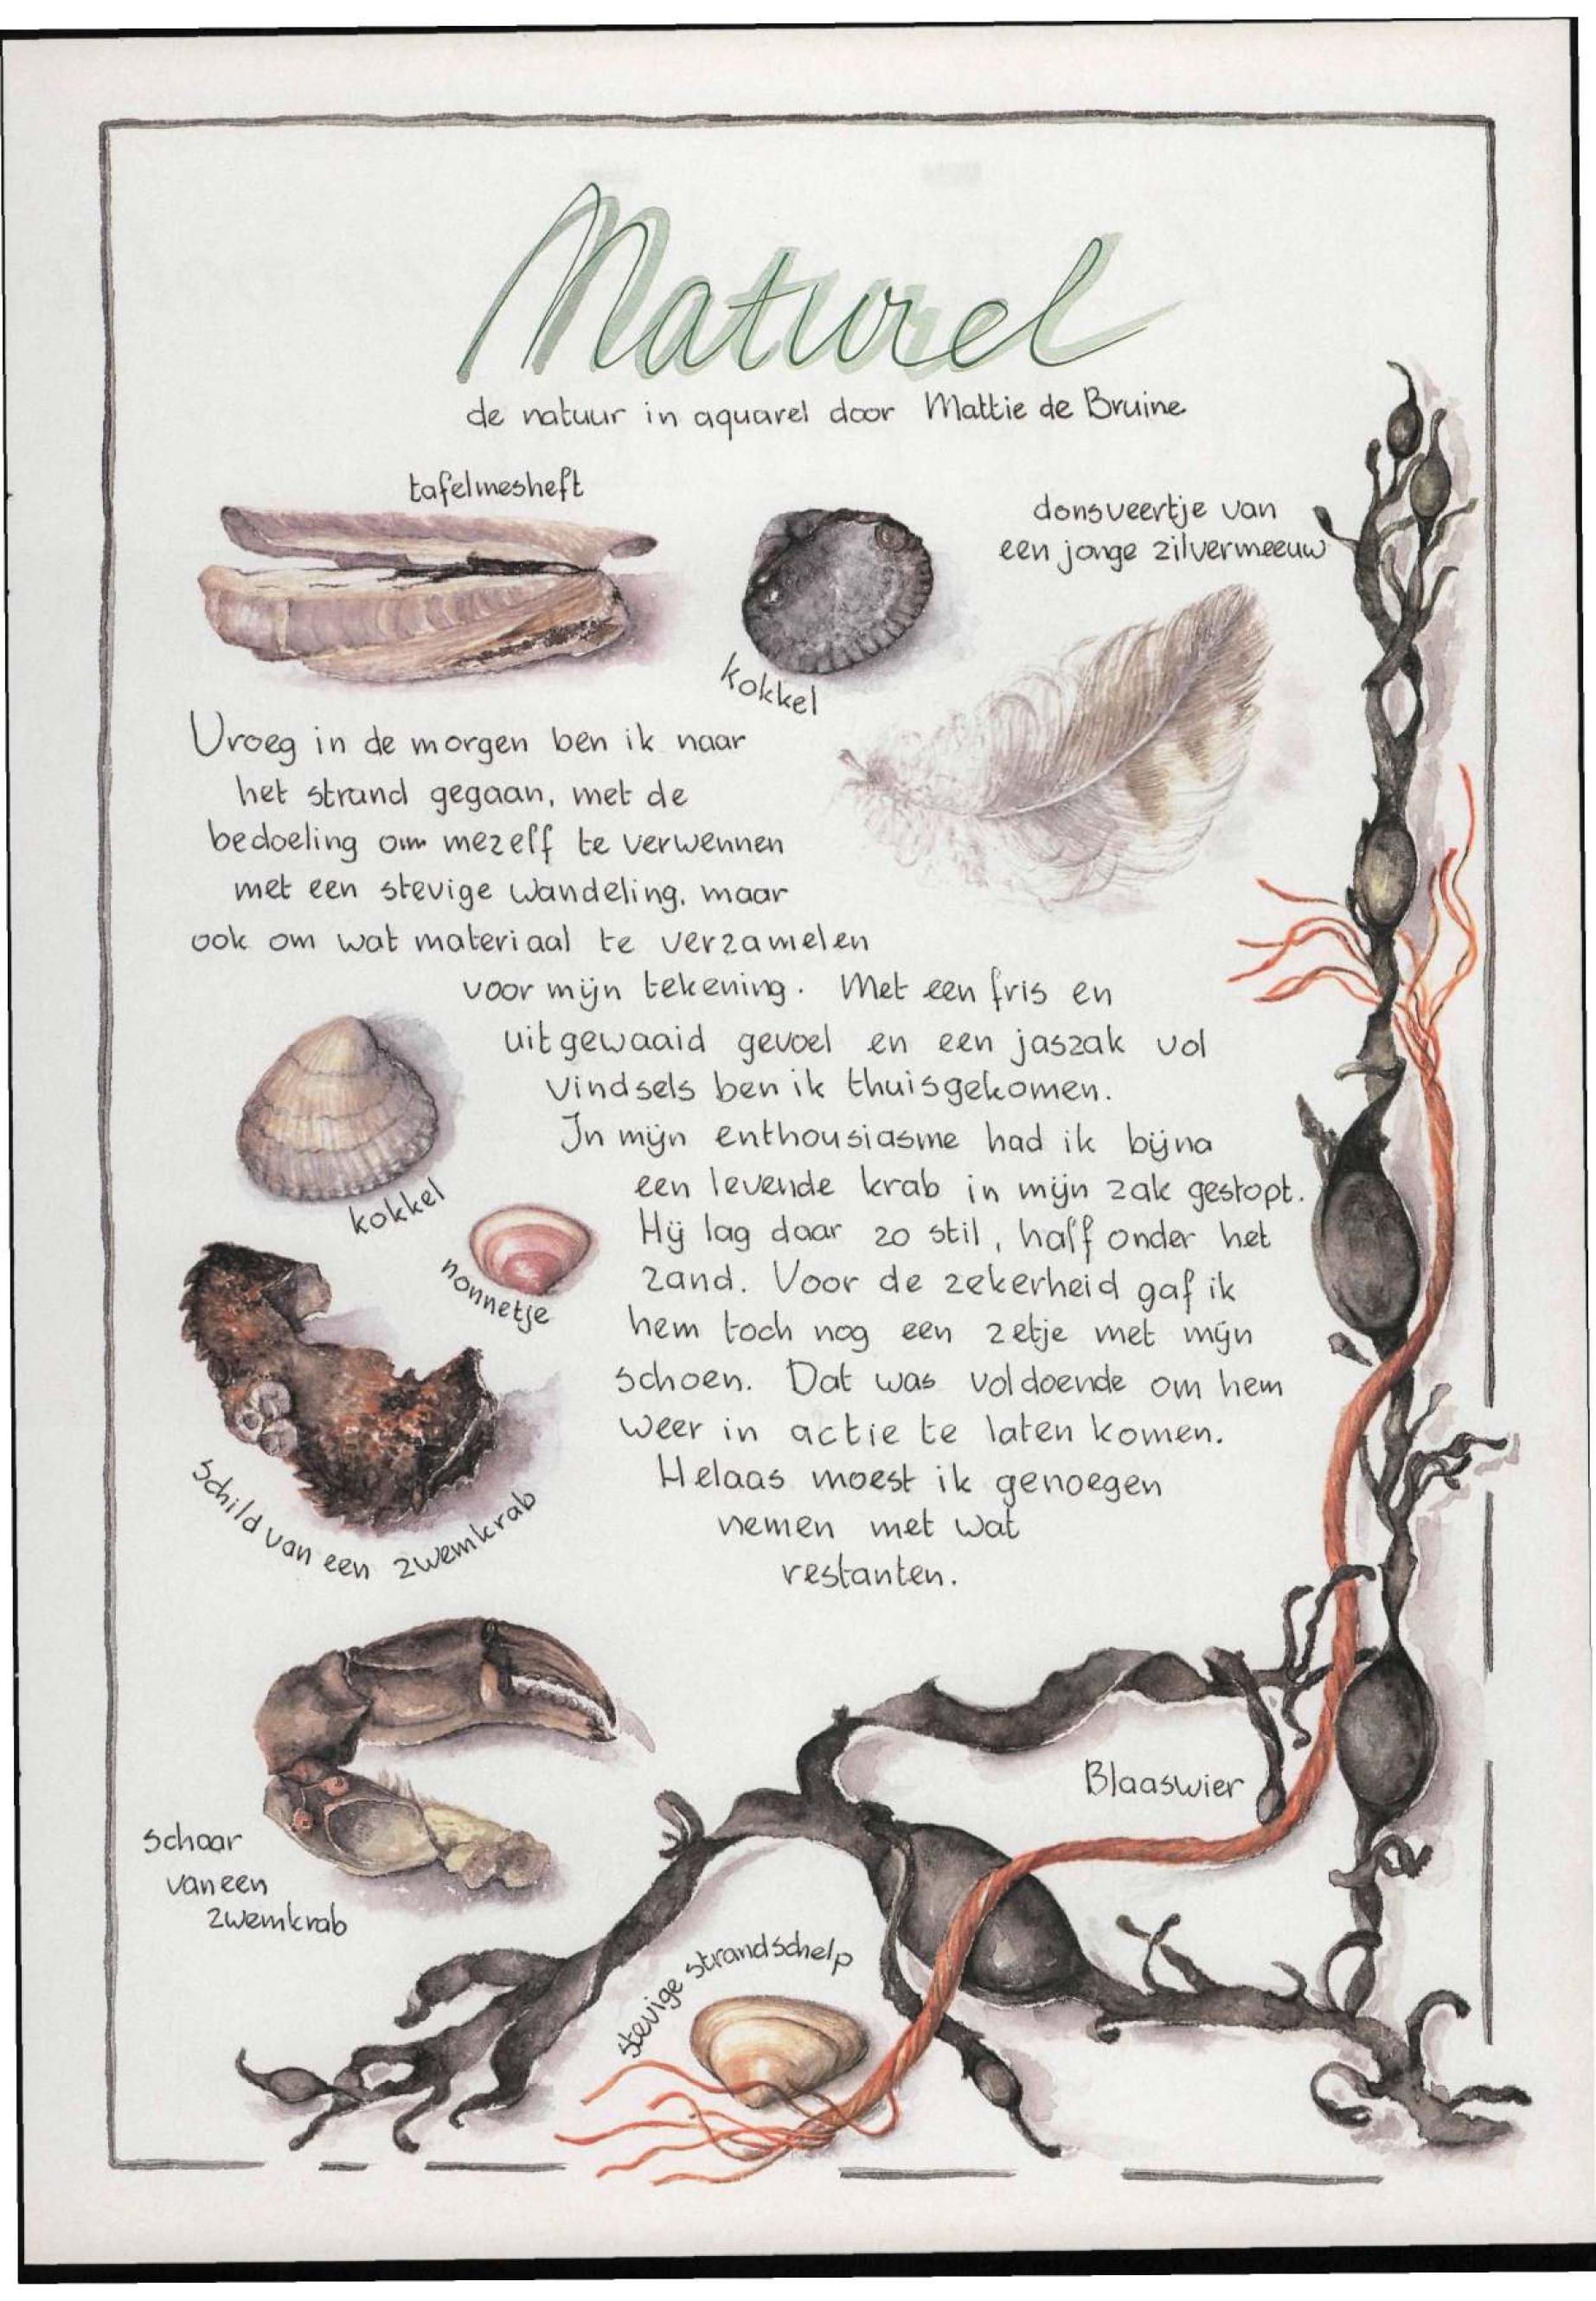 Naturel
de natuur in aquarel door Mattie de Bruine
tafelmesheft
kokkel
donsveertje van
een jonge zilvermeeuw
Vroeg in de morgen ben ik naar
het strand gegaan, met de
bedoeling om mezelf te verwennen
met een stevige wandeling, maar
ook om wat materiaal te verzamelen
voor mijn tekening. Met een fris en
uitgewaaid gevoel en een jaszak vol
vindsels ben ik thuisgekomen.
In mijn enthousiasme had ik bijna
een levende krab in mijn zak gestopt.
Hij lag daar zo stil, half onder het
zand. Voor de zekerheid gaf ik
hem toch nog een zetje met mijn
schoen. Dat was voldoende om hem
weer in actie te laten komen.
Helaas moest ik genoegen
nemen met wat
restanten.
kokkel
nonnetje
schild van een zwemkrab
schaar
van een
zwemkrab
Blaaswier
stevige strandschelp